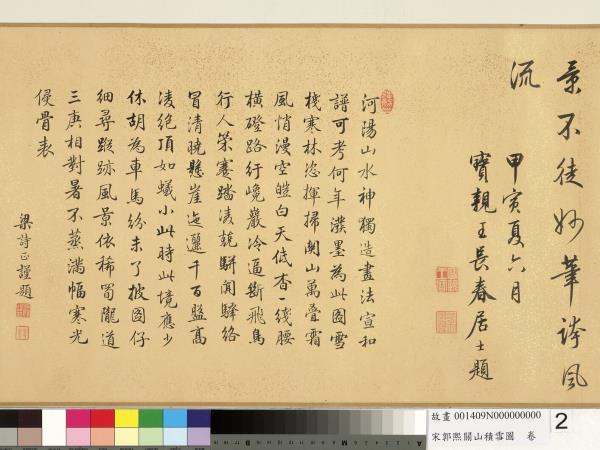 景不徒妙筆誇風
流
甲寅夏六月
寶親王長春居士題
河陽山水神獨造畫法宣和
譜可考何年潑墨為此圖雪
棧寒林恣揮掃關山萬疊霜
風悄漫空皚白天低杳一綫腰
橫磴路行巉巖冷逼斷飛鳥
行人策蹇踏凌兢騈闐驛絡
冒清曉懸崖迤邐千百盤高
凌絕頂如蟻小此時此境應少
休胡為車馬紛未了披圖仔
細尋蹤跡風景依稀蜀隴道
三庚相對暑不蒸滿幅寒光
侵骨表
梁詩正謹題
故畫 001409N000000000
宋郭熙關山積雪圖 卷
2